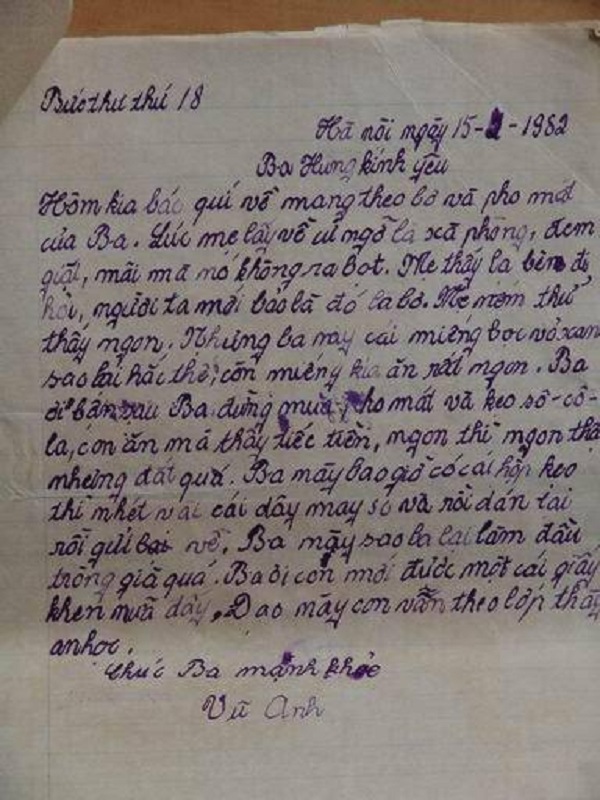 Bức thư thứ 18
Hà nội ngày 15-2-1982
Ba Hưng kính yêu
Hôm kia bác quí về mang theo bơ và pho mát
của Ba. Lúc mẹ lấy về cứ ngỡ là xà phòng, đem
giặt, mãi mà nó không ra bọt. Mẹ thấy lạ bèn đi
hỏi, người ta mới bảo là đó là bơ. Mẹ nếm thử
thấy ngon. Nhưng ba này cái miếng bọc vỏ xan
sao lại hắc thế, còn miếng kia ăn rất ngon. Ba
đi bán sau Ba đừng mua pho mát và kẹo sô-cô-
la, con ăn mà thấy tiếc tiền, ngon thì ngon thậ
nhưng đắt quá. Ba này bao giờ có cái hộp kẹo
thì nhét vài cái dây may so và rồi dán lại
rồi gửi về. Ba này sao ba lại làm đầu
trông già quá. Ba ơi con mới được một cái giấy
khen nữa đấy. Dạo này con vẫn theo lớp thầy
anhoc.
Chúc Ba mạnh khỏe
Vũ Anh